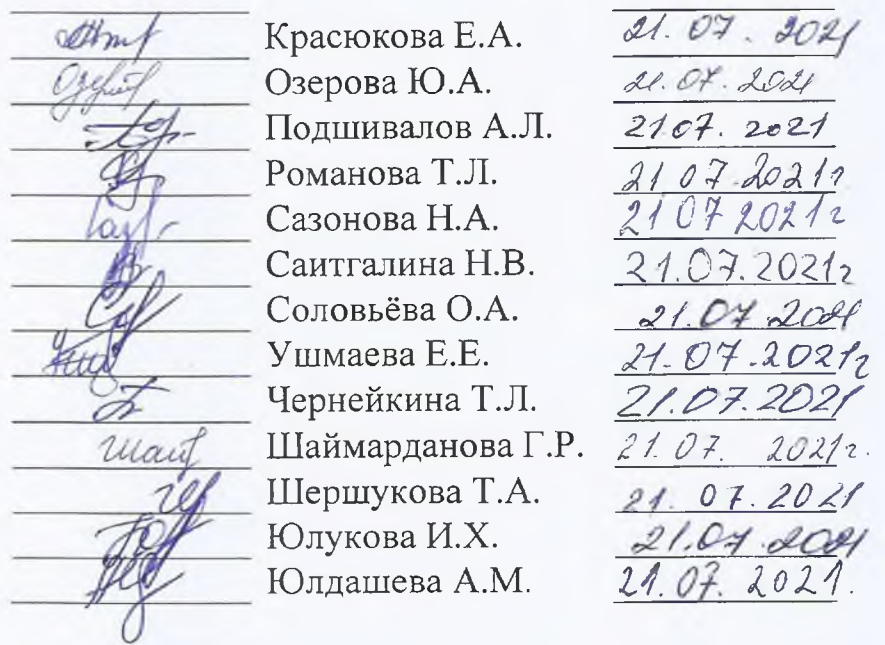 Красюкова Е.А. 21.07.2021
Озерова Ю.А. 21.07.2021
Подшивалов А.Л. 21.07.2021
Романова Т.Л. 21 07.2021г
Сазонова Н.А. 21 07 2021г
Саитгалина Н.В. 21.07.2021г
Соловьёва О.А. 21.07.2021
Ушмаева Е.Е. 21.07.2021г
Чернейкина Т.Л. 21.07.2021
Шаймарданова Г.Р. 21.07. 2021г.
Шершукова Т.А. 21.07.2021
Юлукова И.Х. 21.07.2021
Юлдашева А.М. 21.07.2021.